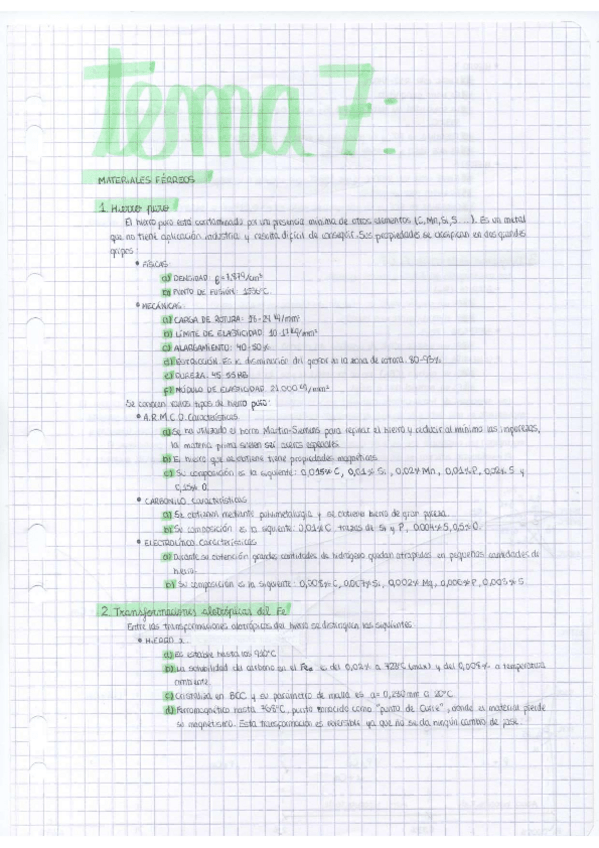 tema 7:
MATERIALES FÉRREOS
1. Hierro puro
El hierro puro está contaminado por una presencia mínima de otros elementos (C, Mn, Si, S ...). Es un metal
que no tiene aplicación industrial y resulta difícil de conseguir. Sus propiedades se clasifican en dos grandes
grupos:
• FÍSICAS:
a) DENSIDAD:
b) PUNTO DE FUSIÓN: 1536°C.
• MECÁNICAS:
a) CARGA DE ROTURA: 18-24 kg/mm²
b) LÍMITE DE ELASTICIDAD: 10-14 kg/mm²
c) ALARGAMIENTO: 40-50%
d) Es la disminución del grosor en la zona de rotura. 80-95%
e) DUREZA: 45-55 HB
f) MÓDULO DE ELASTICIDAD: 21.000 kg/mm²
Se conocen varios tipos de hierro puro:
• A.R.M.C.O. Características
a) Se ha utilizado el horno Martin-Siemens para refinar el hierro y reducir al mínimo las impurezas,
la materia prima suelen ser aceros especiales.
b) El hierro que se obtiene tiene propiedades magnéticas.
c) Su composición es la siguiente: 0,015% C, 0,01% Si, 0,02% Mn, 0,01% P, 0,02% S y
0,15% O.
• CARBONILO. Características
a) Se obtienen mediante pulvimetalurgia y se obtiene hierro de gran pureza.
b) Su composición es la siguiente: 0,01% C, trazas de Si y P, 0,004% S, 0,5% O.
• ELECTROLÍTICO. Características
a) Durante su obtención grandes cantidades de hidrógeno quedan atrapados en pequeñas cantidades de
hierro.
b) Su composición es la siguiente: 0,008% C, 0,007% Si, 0,002% Mg, 0,006% P, 0,005% S
2. Transformaciones alotrópicas del Fe
Entre las transformaciones alotrópicas del hierro se distinguen las siguientes:
• HIERRO α
a) Es estable hasta los 910°C
b) La solubilidad del carbono en el Feα es del 0,02% a 723°C (max) y del 0,008% a temperatura
ambiente.
c) Cristaliza en BCC y su parámetro de malla es a= 0,286 nm a 20°C
d) Ferromagnético hasta 768°C, punto conocido como "punto de Curie", donde el material pierde
su magnetismo. Esta transformación es reversible ya que no se da ningún cambio de fase.